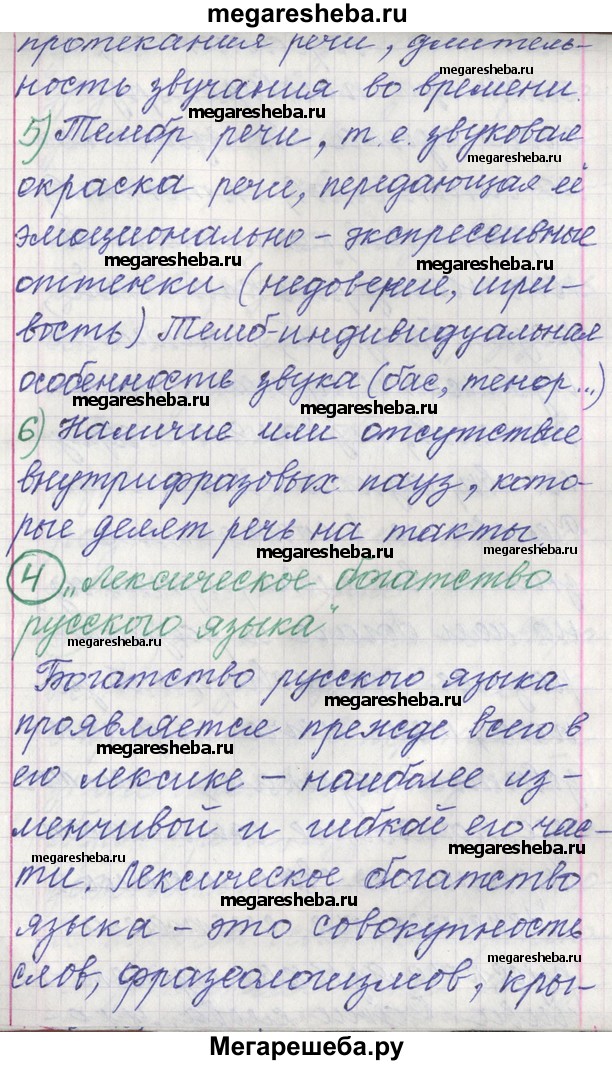 megaresheba.ru
протекания речи, длитель-
megaresheba.ru
ность звучания во времени.
megaresheba.ru
5) Тембр речи, т. е. звуковая
окраска речи, передающая её
megaresheba.ru
эмоционально - экспрессивные
megaresheba.ru
megaresheba.ru
оттенки (недоверие, игри-
вость) Темб-индивидуальная
megaresheba.ru
особенность звука (бас, тенор...)
megaresheba.ru
megaresheba.ru
6) Наличие или отсутствие
внутрифразовых пауз, кото-
рые делят речь на такты
megaresheba.ru
megaresheba.ru
4 „Лексическое богатство
русского языка"
megaresheba.ru
Богатство русского языка
megaresheba.ru
проявляется прежде всего в
megaresheba.ru
его лексике – наиболее из-
менчивой и гибкой его час-
megaresheba.ru
megaresheba.ru
ти. Лексическое богатство
megaresheba.ru
языка - это совокупность
megaresheba.ru
слов, фразеологизмов, кры-
megaresheba.ru
Мегарешеба.ру